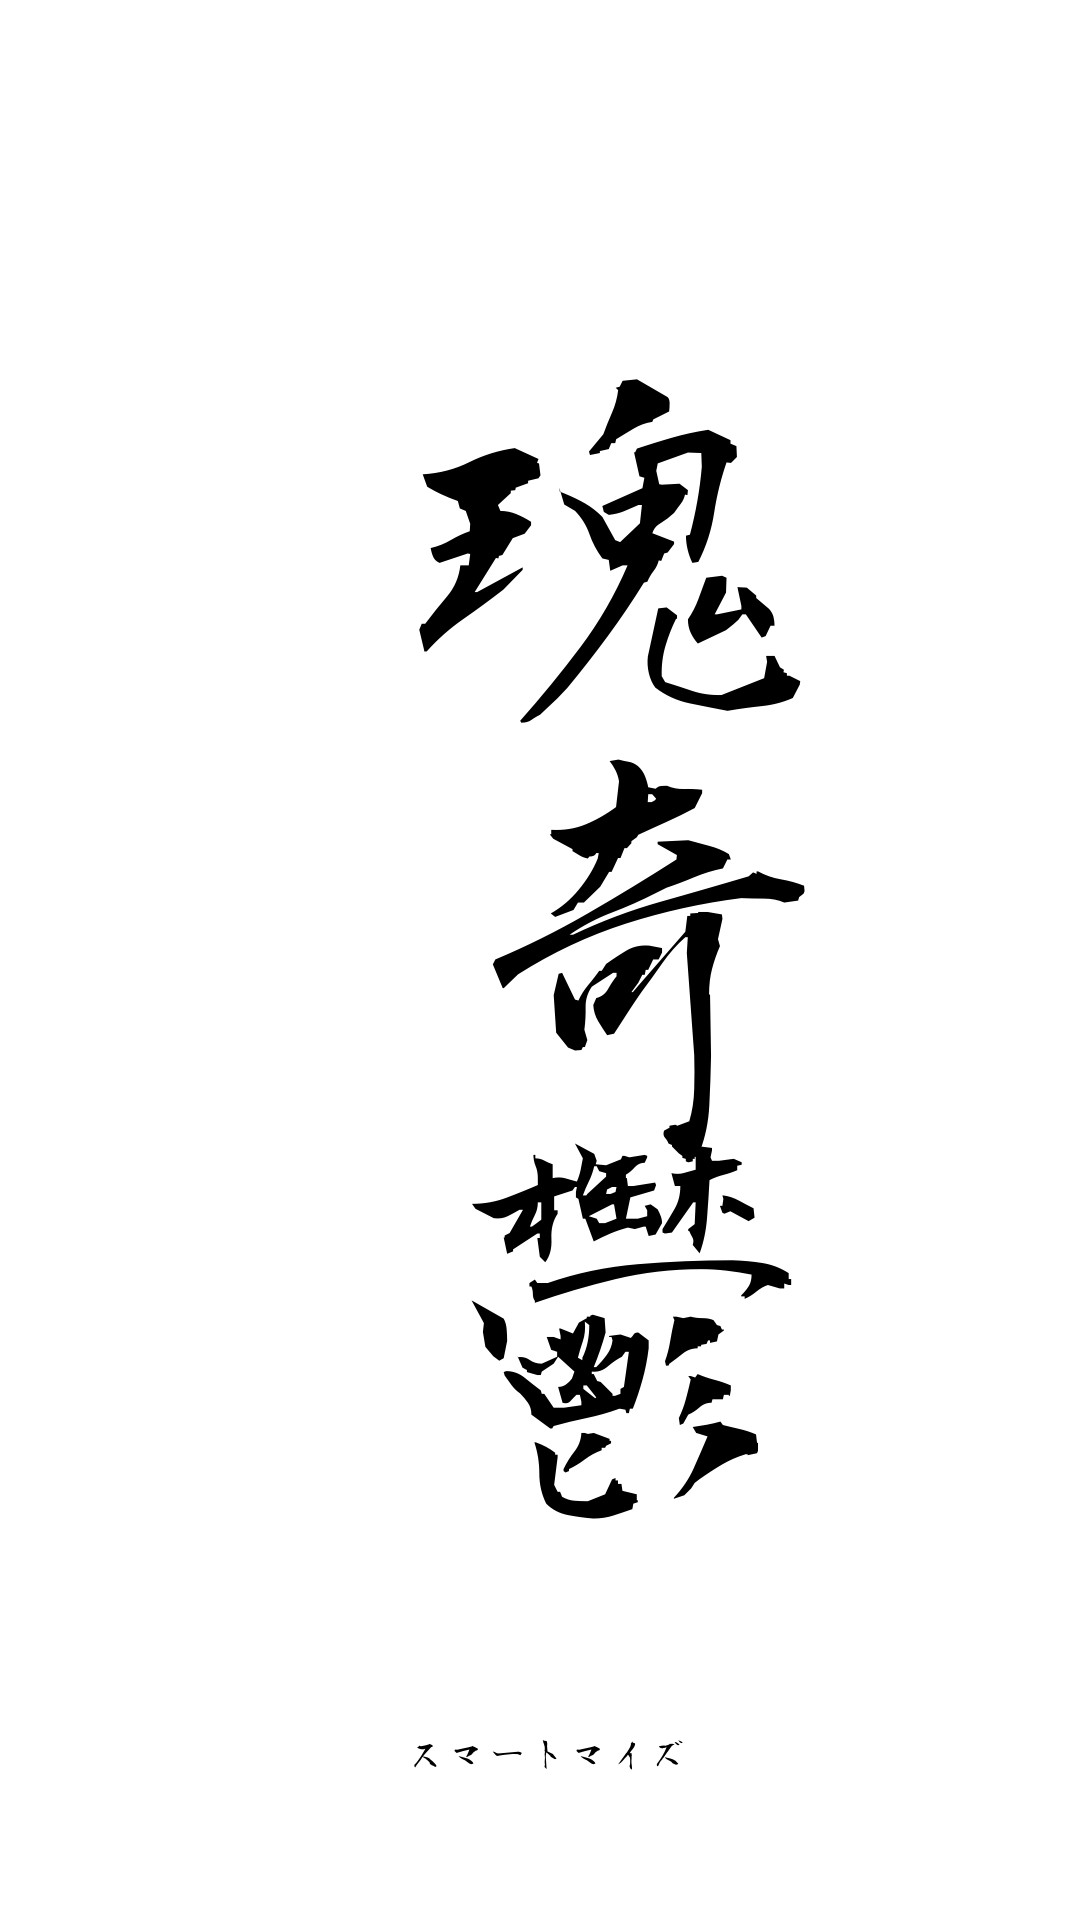 瑰奇鬱
スマートマイズ